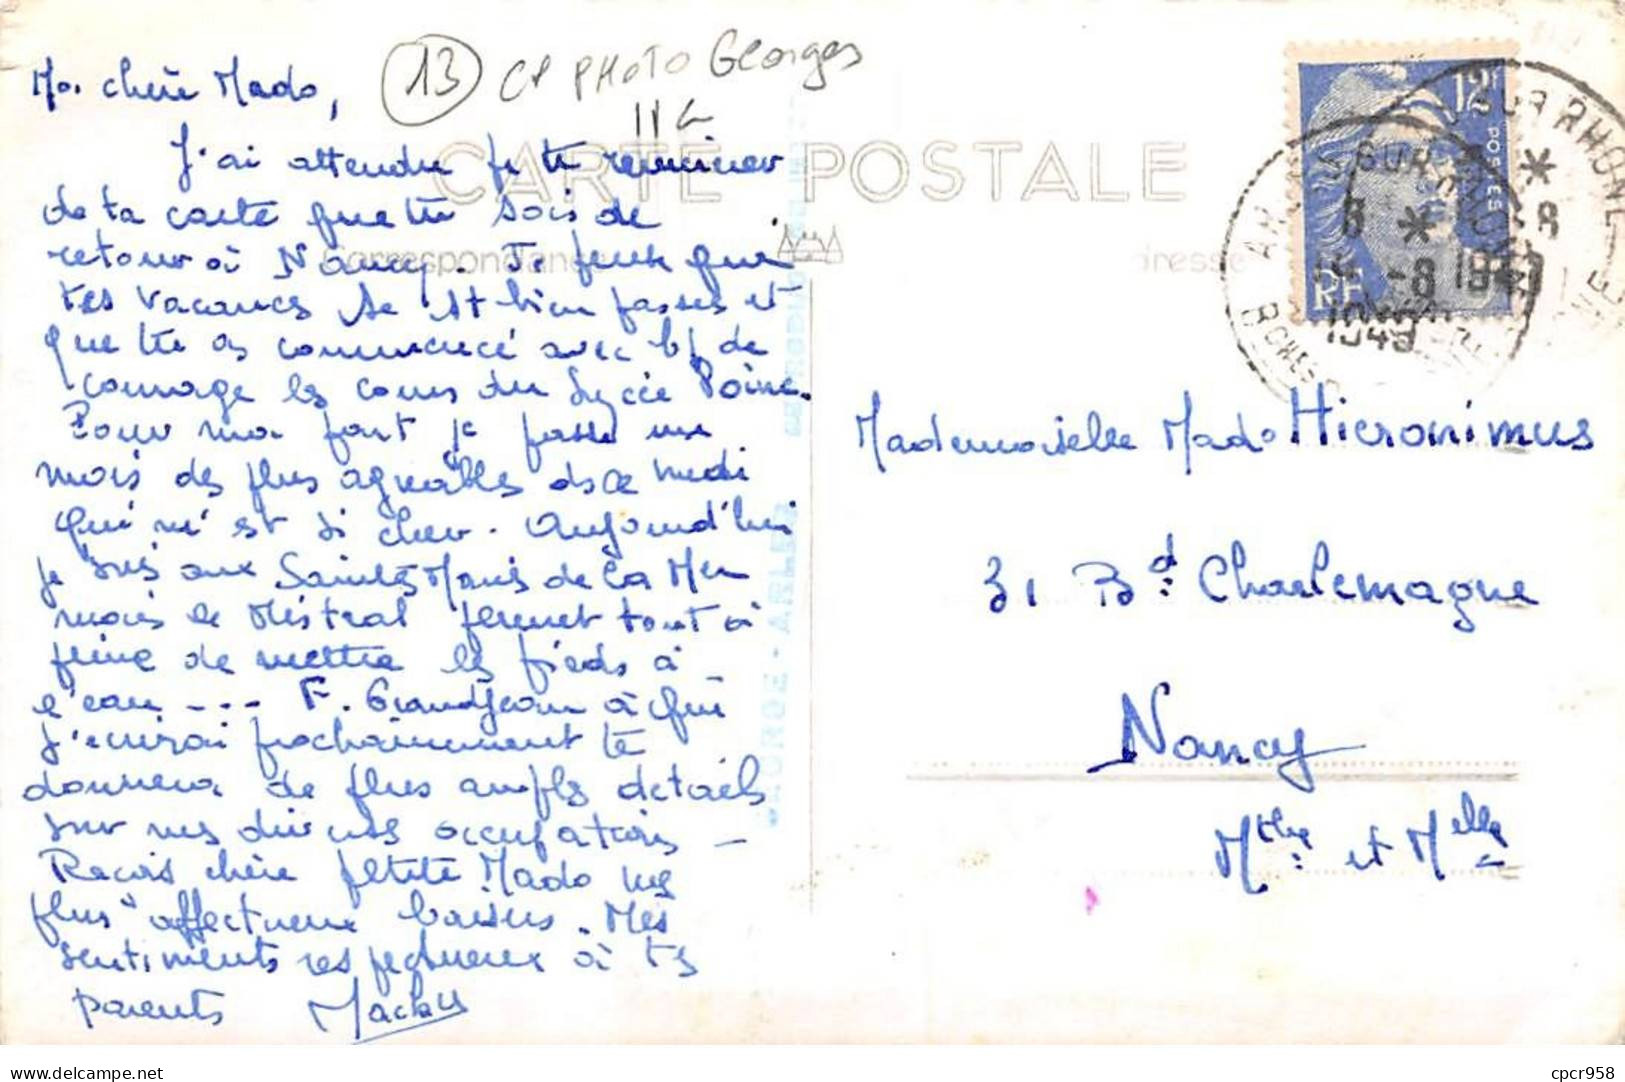 Ma chère Mado,
13 CP PHOTO Georges
J'ai attendu pr te remercier
CARTE POSTALE
de ta carte que tu sois de
retour à Nancy. Je pense que
Correspondance
Adresse
tes vacances se st bien passées et
que tu as commencé avec bp de
courage les cours du Lycée Poinc.
Pour ma part je passe un
mois des plus agréables ds ce midi
qui m'est si cher. Aujourd'hui
je suis aux Saintes Maries de la Mer
mais le Mistral permet tout à
peine de mettre les pieds à
l'eau --- F. Grandjean à qui
j'écrirai prochainement te
donnera de plus amples détails
sur mes diverses occupations -
Reçois chère petite Mado mes
plus affectueux baisers. Mes
sentiments respectueux à tes
parents
GEORGE - ARLES
12F
POSTES
RF
SUR RHONE
1949
Mademoiselle Mado Hieronimus
31 Bd Charlemagne
Nancy
Mthe et Melle
cpcr958